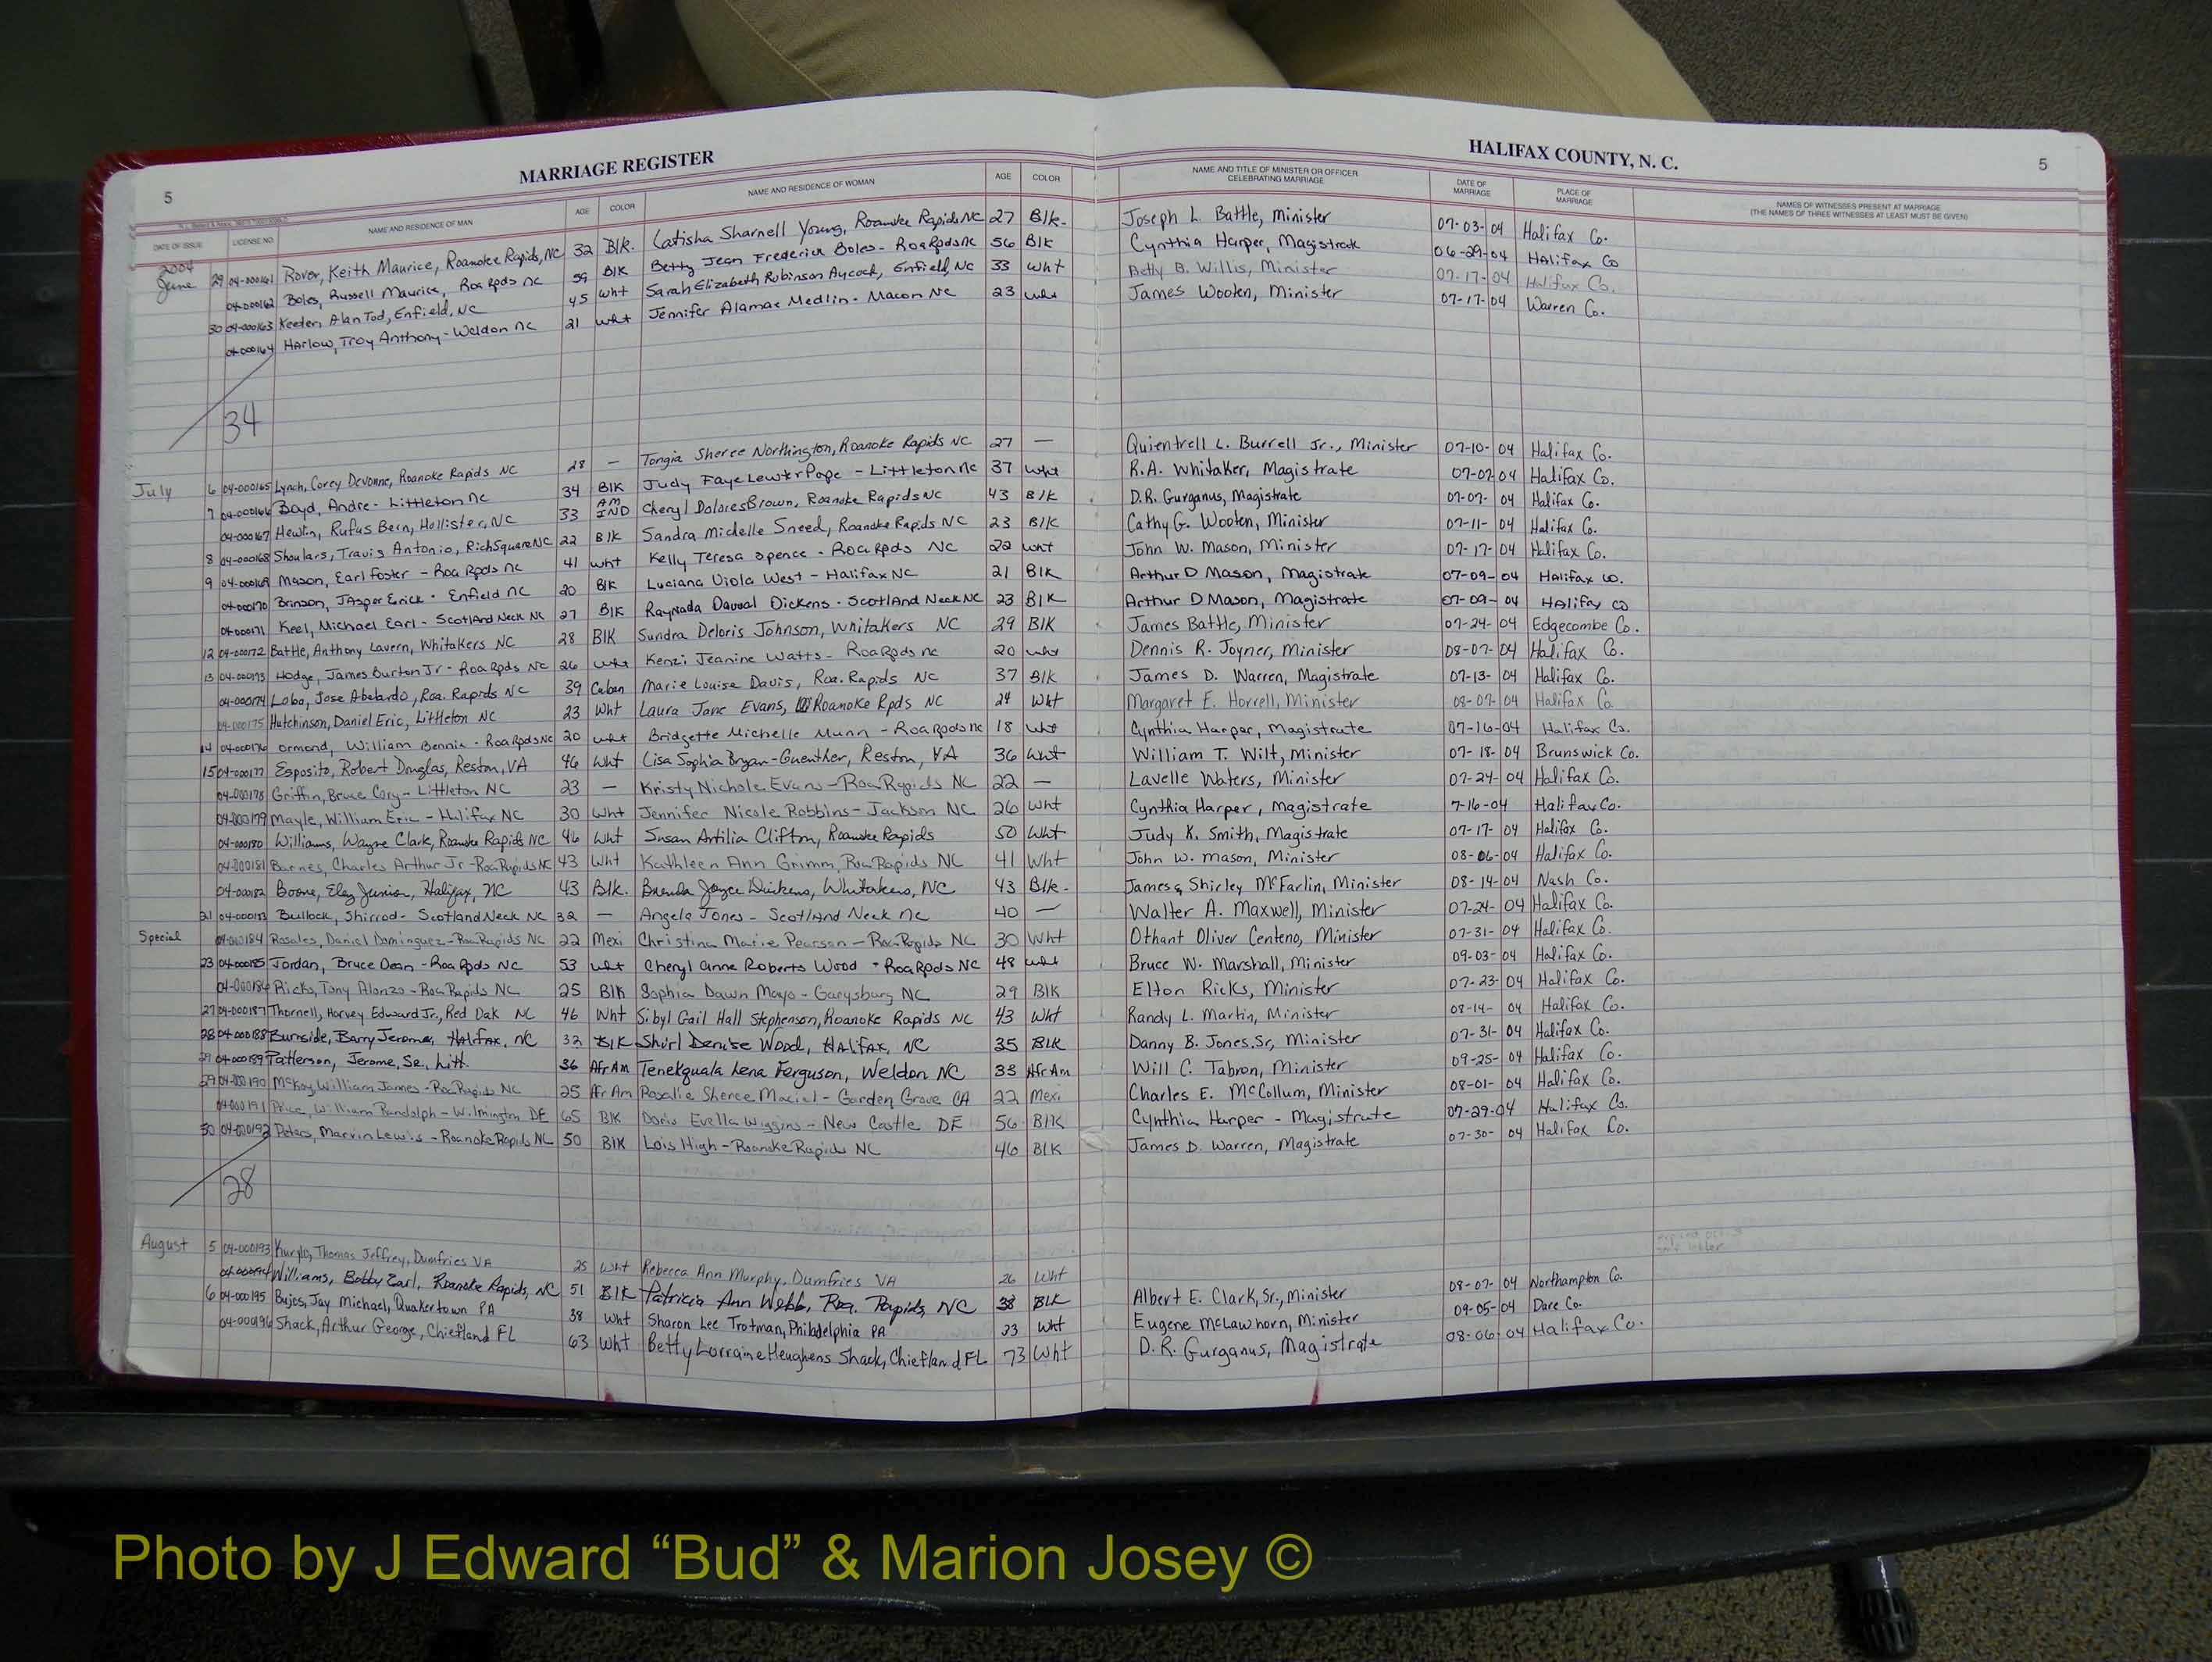 MARRIAGE REGISTER
HALIFAX COUNTY, N. C.
5
5
DATE OF ISSUE LICENSE NO. NAME AND RESIDENCE OF MAN AGE COLOR NAME AND RESIDENCE OF WOMAN AGE COLOR NAME AND TITLE OF MINISTER OR OFFICER CELEBRATING MARRIAGE DATE OF MARRIAGE PLACE OF MARRIAGE NAMES OF WITNESSES PRESENT AT MARRIAGE (THE NAMES OF THREE WITNESSES AT LEAST MUST BE GIVEN)
2004
June 29 04-000161 Rover, Keith Maurice, Roanoke Rapids, NC 32 Blk. Latisha Sharnell Young, Roanoke Rapids NC 27 Blk- Joseph L. Battle, Minister 07-03-04 Halifax Co.
04-000162 Boles, Russell Maurice, Roa Rpds NC 59 Blk Betty Jean Frederick Boles- Roa Rpds NC 56 Blk Cynthia Harper, Magistrate 06-29-04 Halifax Co
30 04-000163 Keeter, Alan Tod, Enfield, NC 45 Wht Sarah Elizabeth Robinson Aycock, Enfield, NC 33 Wht Betty B. Willis, Minister 07-17-04 Halifax Co.
04-000164 Harlow, Troy Anthony- Weldon NC 21 Wht Jennifer Alamae Medlin- Macon NC 23 Wht James Wooten, Minister 07-17-04 Warren Co.
34
July 6 04-000165 Lynch, Corey Devonne, Roanoke Rapids NC 28 — Tongia Sheree Northington, Roanoke Rapids NC 27 — Quientrell L. Burrell Jr., Minister 07-10-04 Halifax Co.
7 04-000166 Boyd, Andre- Littleton NC 34 Blk Judy Faye Lewter Pope - Littleton NC 37 Wht R.A. Whitaker, Magistrate 07-07-04 Halifax Co.
04-000167 Hewlin, Rufus Bern, Hollister, NC 33 AM IND Cheryl Dolores Brown, Roanoke Rapids NC 43 Blk D.R. Gurganus, Magistrate 07-07-04 Halifax Co.
8 04-000168 Shoulars, Travis Antonio, Rich Square NC 22 Blk Sandra Michelle Sneed, Roanoke Rapids NC 23 Blk Cathy G. Wooten, Minister 07-11-04 Halifax Co.
9 04-000169 Mason, Earl Foster - Roa Rpds NC 41 Wht Kelly Teresa Spence - Roa Rpds NC 22 Wht John W. Mason, Minister 07-17-04 Halifax Co.
04-000170 Brinson, Jasper Erick - Enfield NC 20 Blk Luciana Viola West - Halifax NC 21 Blk Arthur D Mason, Magistrate 07-09-04 Halifax Co.
04-000171 Keel, Michael Earl - Scotland Neck NC 27 Blk Dickens - Scotland Neck NC 23 Blk Arthur D Mason, Magistrate 07-09-04 Halifax Co
12 04-000172 Battle, Anthony Lavern, Whitakers NC 28 Blk Sundra Deloris Johnson, Whitakers NC 29 Blk James Battle, Minister 07-24-04 Edgecombe Co.
13 04-000173 Hodge, James Burton Jr - Roa Rpds NC 26 Wht Kenzi Jeanine Watts- Roa Rpds NC 20 Wht Dennis R. Joyner, Minister 08-07-04 Halifax Co.
04-000174 Lobo, Jose Abelardo, Roa. Rapids NC 39 Cuban Marie Louise Davis, Roa. Rapids NC 37 Blk James D. Warren, Magistrate 07-13-04 Halifax Co.
04-000175 Hutchinson, Daniel Eric, Littleton NC 23 Wht Laura Jane Evans, Roanoke Rpds NC 24 Wht Margaret E. Horrell, Minister 08-07-04 Halifax Co
14 04-000176 Ormond, William Bennie - Roa Rpds NC 20 Wht Bridgette Michelle Munn - Roa Rpds NC 18 Wht Cynthia Harper, Magistrate 07-16-04 Halifax Co.
15 04-000177 Esposito, Robert Douglas, Reston, VA 46 Wht Lisa Sophia Bryan-Guenther, Reston, VA 36 Wht William T. Wilt, Minister 07-18-04 Brunswick Co.
04-000178 Griffin, Bruce Cory- Littleton NC 23 — Kristy Nichole Evans-Roa Rapids NC 22 — Lavelle Waters, Minister 07-24-04 Halifax Co.
04-000179 Mayle, William Eric - Halifax NC 30 Wht Jennifer Nicole Robbins- Jackson NC 26 Wht Cynthia Harper, Magistrate 7-16-04 Halifax Co.
04-000180 Williams, Wayne Clark, Roanoke Rapids NC 46 Wht Susan Artilia Clifton, Roanoke Rapids 50 Wht Judy K. Smith, Magistrate 07-17-04 Halifax Co.
04-000181 Barnes, Charles Arthur Jr-Roa Rapids NC 43 Wht Kathleen Ann Grimm, Roa Rapids NC 41 Wht John W. Mason, Minister 08-06-04 Halifax Co.
04-000182 Boone, Eley Junior, Halifax, NC 43 Blk. Brenda Joyce Dickens, Whitakers, NC 43 Blk- James & Shirley McFarlin, Minister 08-14-04 Nash Co.
21 04-000183 Bullock, Shirrod- Scotland Neck NC 32 — Angela Jones - Scotland Neck NC 40 — Walter A. Maxwell, Minister 07-24-04 Halifax Co.
Special 04-000184 Rosales, Daniel Dominguez-Roa Rapids NC 22 Mexi Christina Marie Pearson - Roa Rapids NC 30 Wht Othant Oliver Centeno, Minister 07-31-04 Halifax Co.
23 04-000185 Jordan, Bruce Dean - Roa Rpds NC 53 Wht Cheryl Anne Roberts Wood - Roa Rpds NC 48 Wht Bruce W. Marshall, Minister 09-03-04 Halifax Co.
04-000186 Ricks, Tony Alonzo - Roa Rapids NC 25 Blk Sophia Dawn Mayo - Garysburg NC 29 Blk Elton Ricks, Minister 07-23-04 Halifax Co.
27 04-000187 Thornell, Harvey Edward Jr., Red Oak NC 46 Wht Sibyl Gail Hall Stephenson, Roanoke Rapids NC 43 Wht Randy L. Martin, Minister 08-14-04 Halifax Co.
28 04-000188 Burnside, Barry Jerome, Halifax, NC 32 Blk Shirl Denise Wood, Halifax, NC 35 Blk Danny B. Jones, Sr, Minister 07-31-04 Halifax Co.
29 04-000189 Patterson, Jerome, Sr., Litt. 36 Afr Am Tenekquala Lena Ferguson, Weldon NC 33 Afr Am Will C. Tabron, Minister 09-25-04 Halifax Co.
29 04-000190 McKoy, William James - Roa Rapids NC 25 Afr Am Rosalie Sheree Maciel - Garden Grove CA 22 Mexi Charles E. McCollum, Minister 08-01-04 Halifax Co.
04-000191 Price, William Randolph - Wilmington DE 65 Blk Doris Evella Wiggins - New Castle DE 56 Blk Cynthia Harper - Magistrate 07-29-04 Halifax Co.
30 04-000192 Peters, Marvin Lewis - Roanoke Rapids NC 50 Blk Lois High - Roanoke Rapids NC 46 Blk James D. Warren, Magistrate 07-30-04 Halifax Co.
28
August 5 04-000193 Thomas Jeffrey, Dumfries VA 25 Wht Rebecca Ann Murphy, Dumfries VA 26 Wht
04-000194 Williams, Bobby Earl, Roanoke Rapids, NC 51 Blk Patricia Ann Webb, Roa. Rapids, NC 38 Blk Albert E. Clark, Sr., Minister 08-07-04 Northampton Co.
6 04-000195 Bujos, Jay Michael, Quakertown PA 38 Wht Sharon Lee Trotman, Philadelphia PA 23 Wht Eugene McLawhorn, Minister 09-05-04 Dare Co.
04-000196 Shack, Arthur George, Chiefland FL 63 Wht Betty Lorraine Heughens Shack, Chiefland FL 73 Wht D.R. Gurganus, Magistrate 08-06-04 Halifax Co.
Photo by J Edward “Bud” & Marion Josey ©